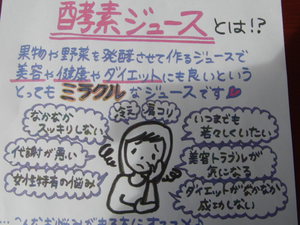 酵素ジュースとは!?
果物や野菜を発酵させて作るジュースで
美容や健康やダイエットにも良いという
とっても ミラクル なジュースです
なかなか
スッキリしない
代謝が悪い
女性特有の悩み
冷え 肩コリ
いつまでも
若々しくいたい
美容トラブルが
気になる
ダイエットがなかなか
成功しない